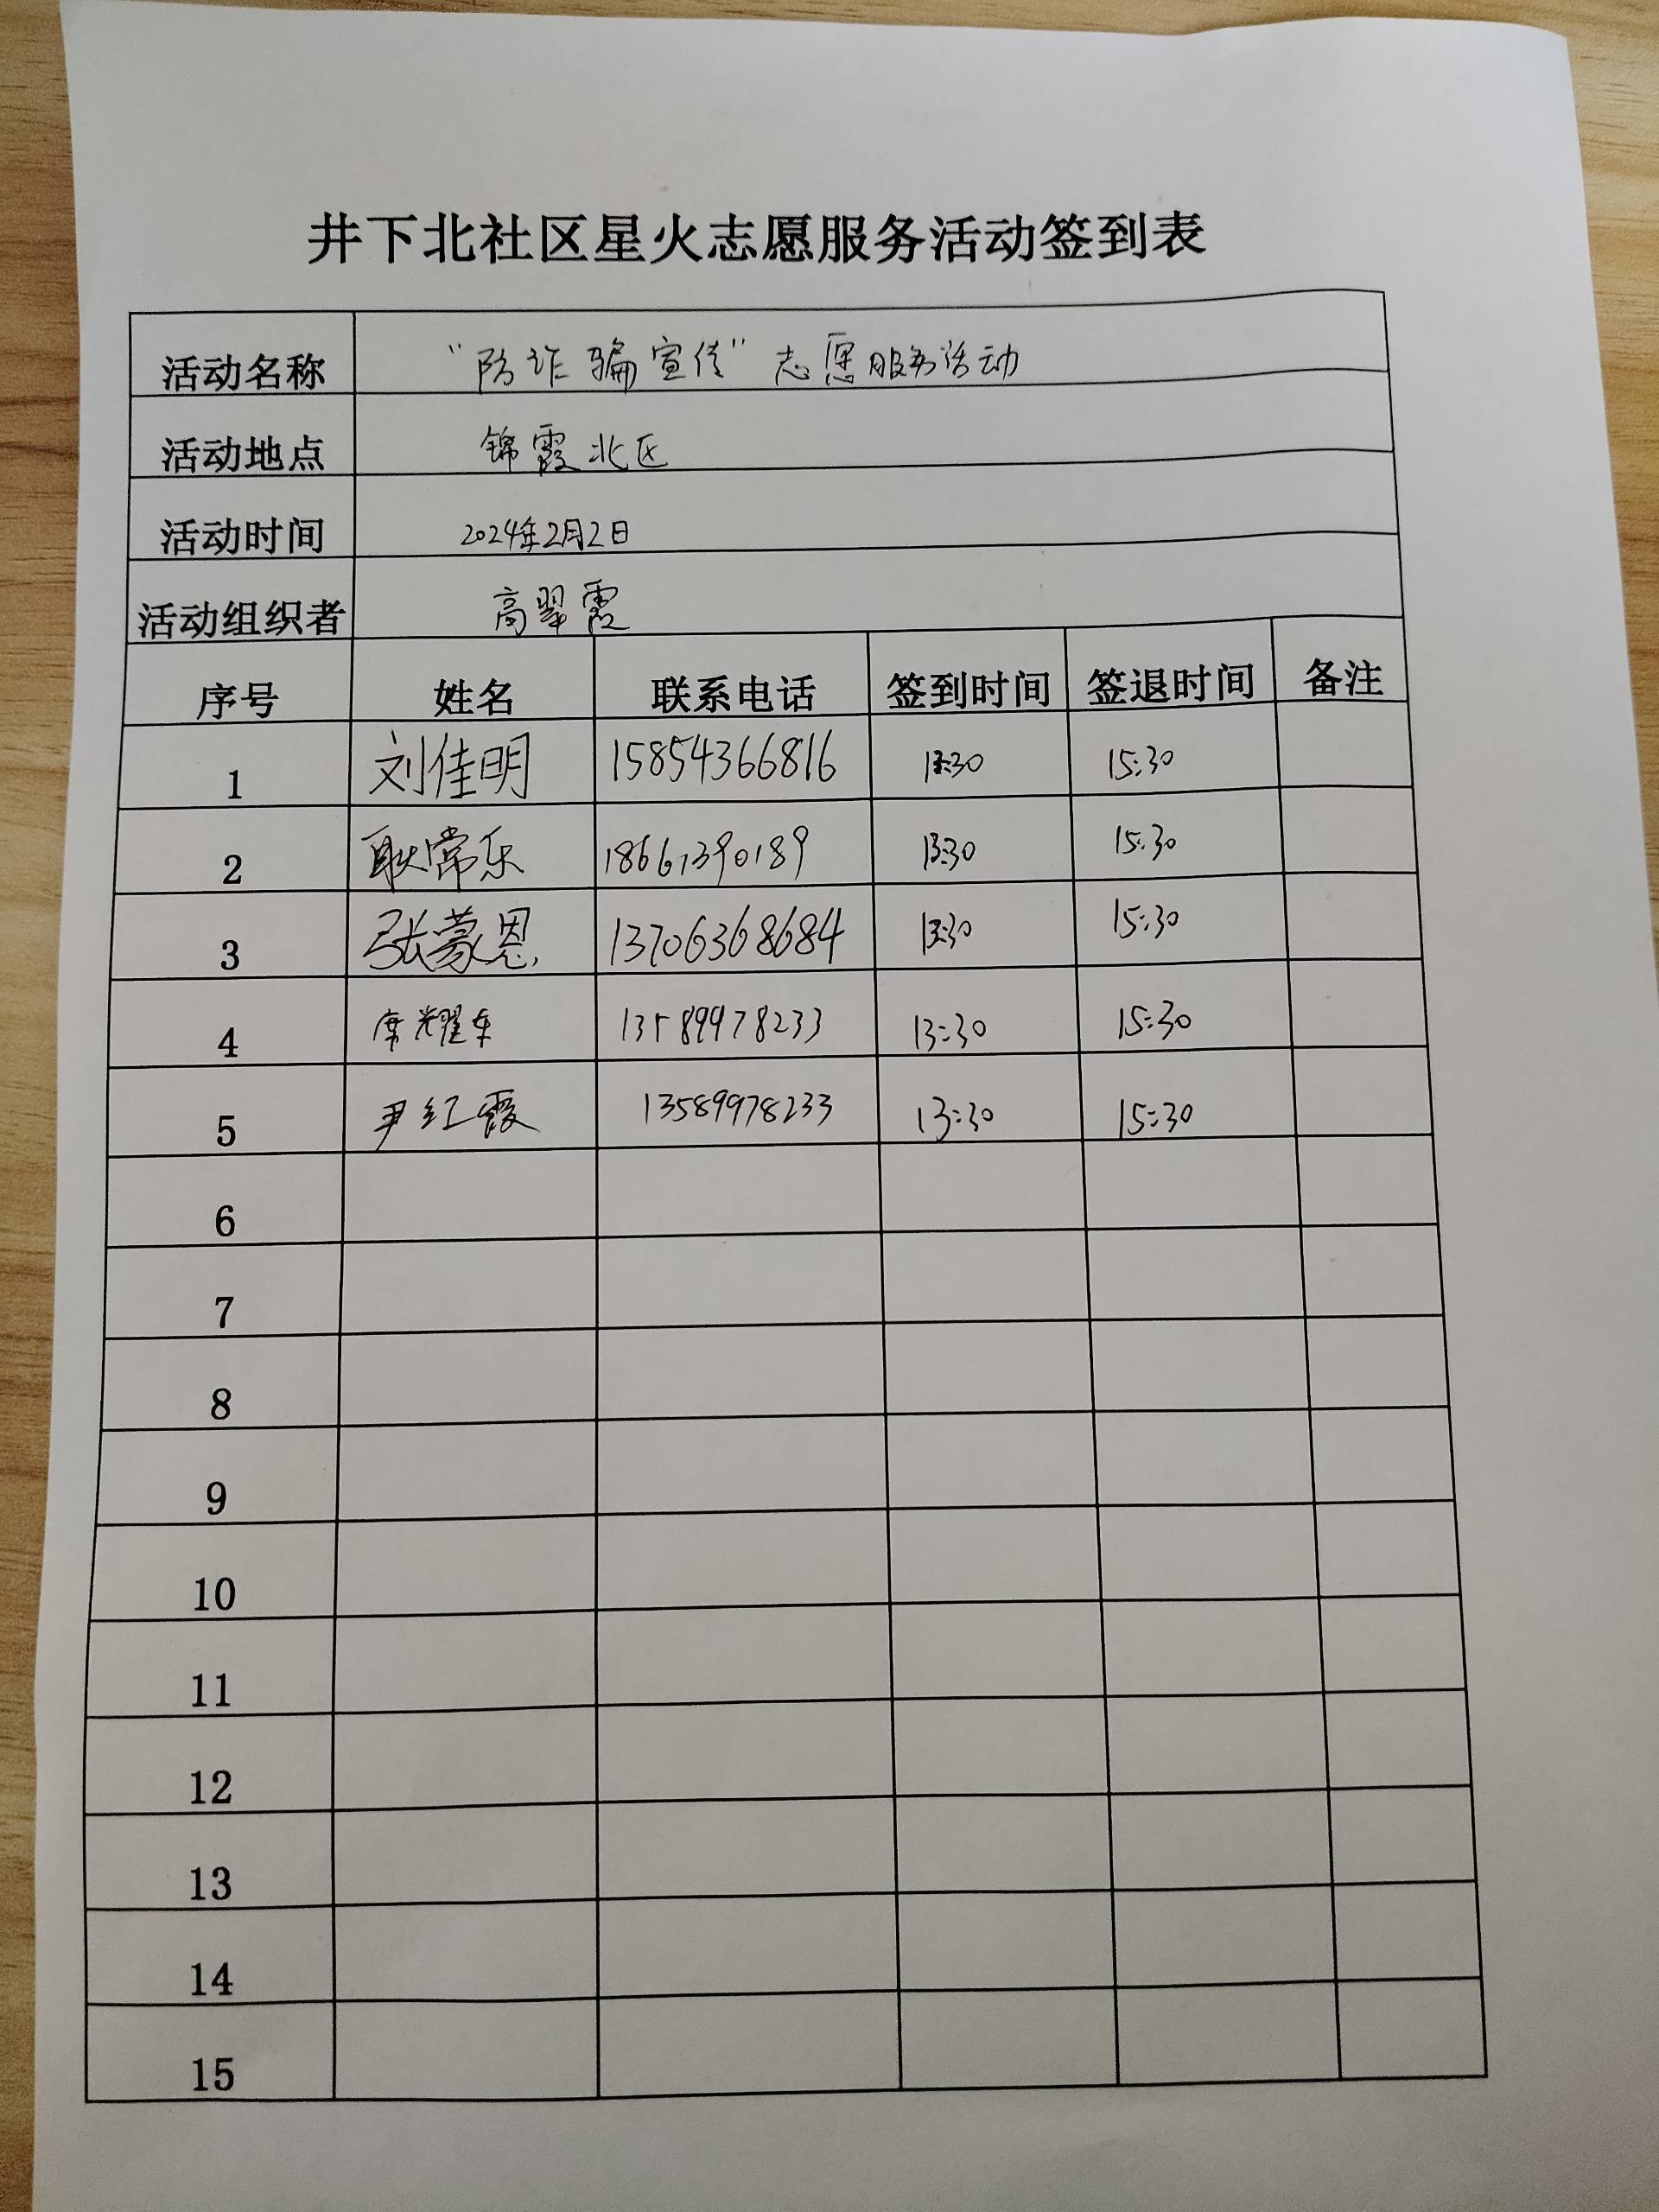 井下北社区星火志愿服务活动签到表
活动名称 “防诈骗宣传”志愿服务活动
活动地点 锦霞北区
活动时间 2024年2月2日
活动组织者 高翠霞
序号 姓名 联系电话 签到时间 签退时间 备注
1 刘佳明 15854366816 13:30 15:30
2 耿常乐 18661390189 13:30 15:30
3 张蒙恩 13706368684 13:30 15:30
4 席耀车 13589978233 13:30 15:30
5 尹红霞 13589978233 13:30 15:30
6
7
8
9
10
11
12
13
14
15